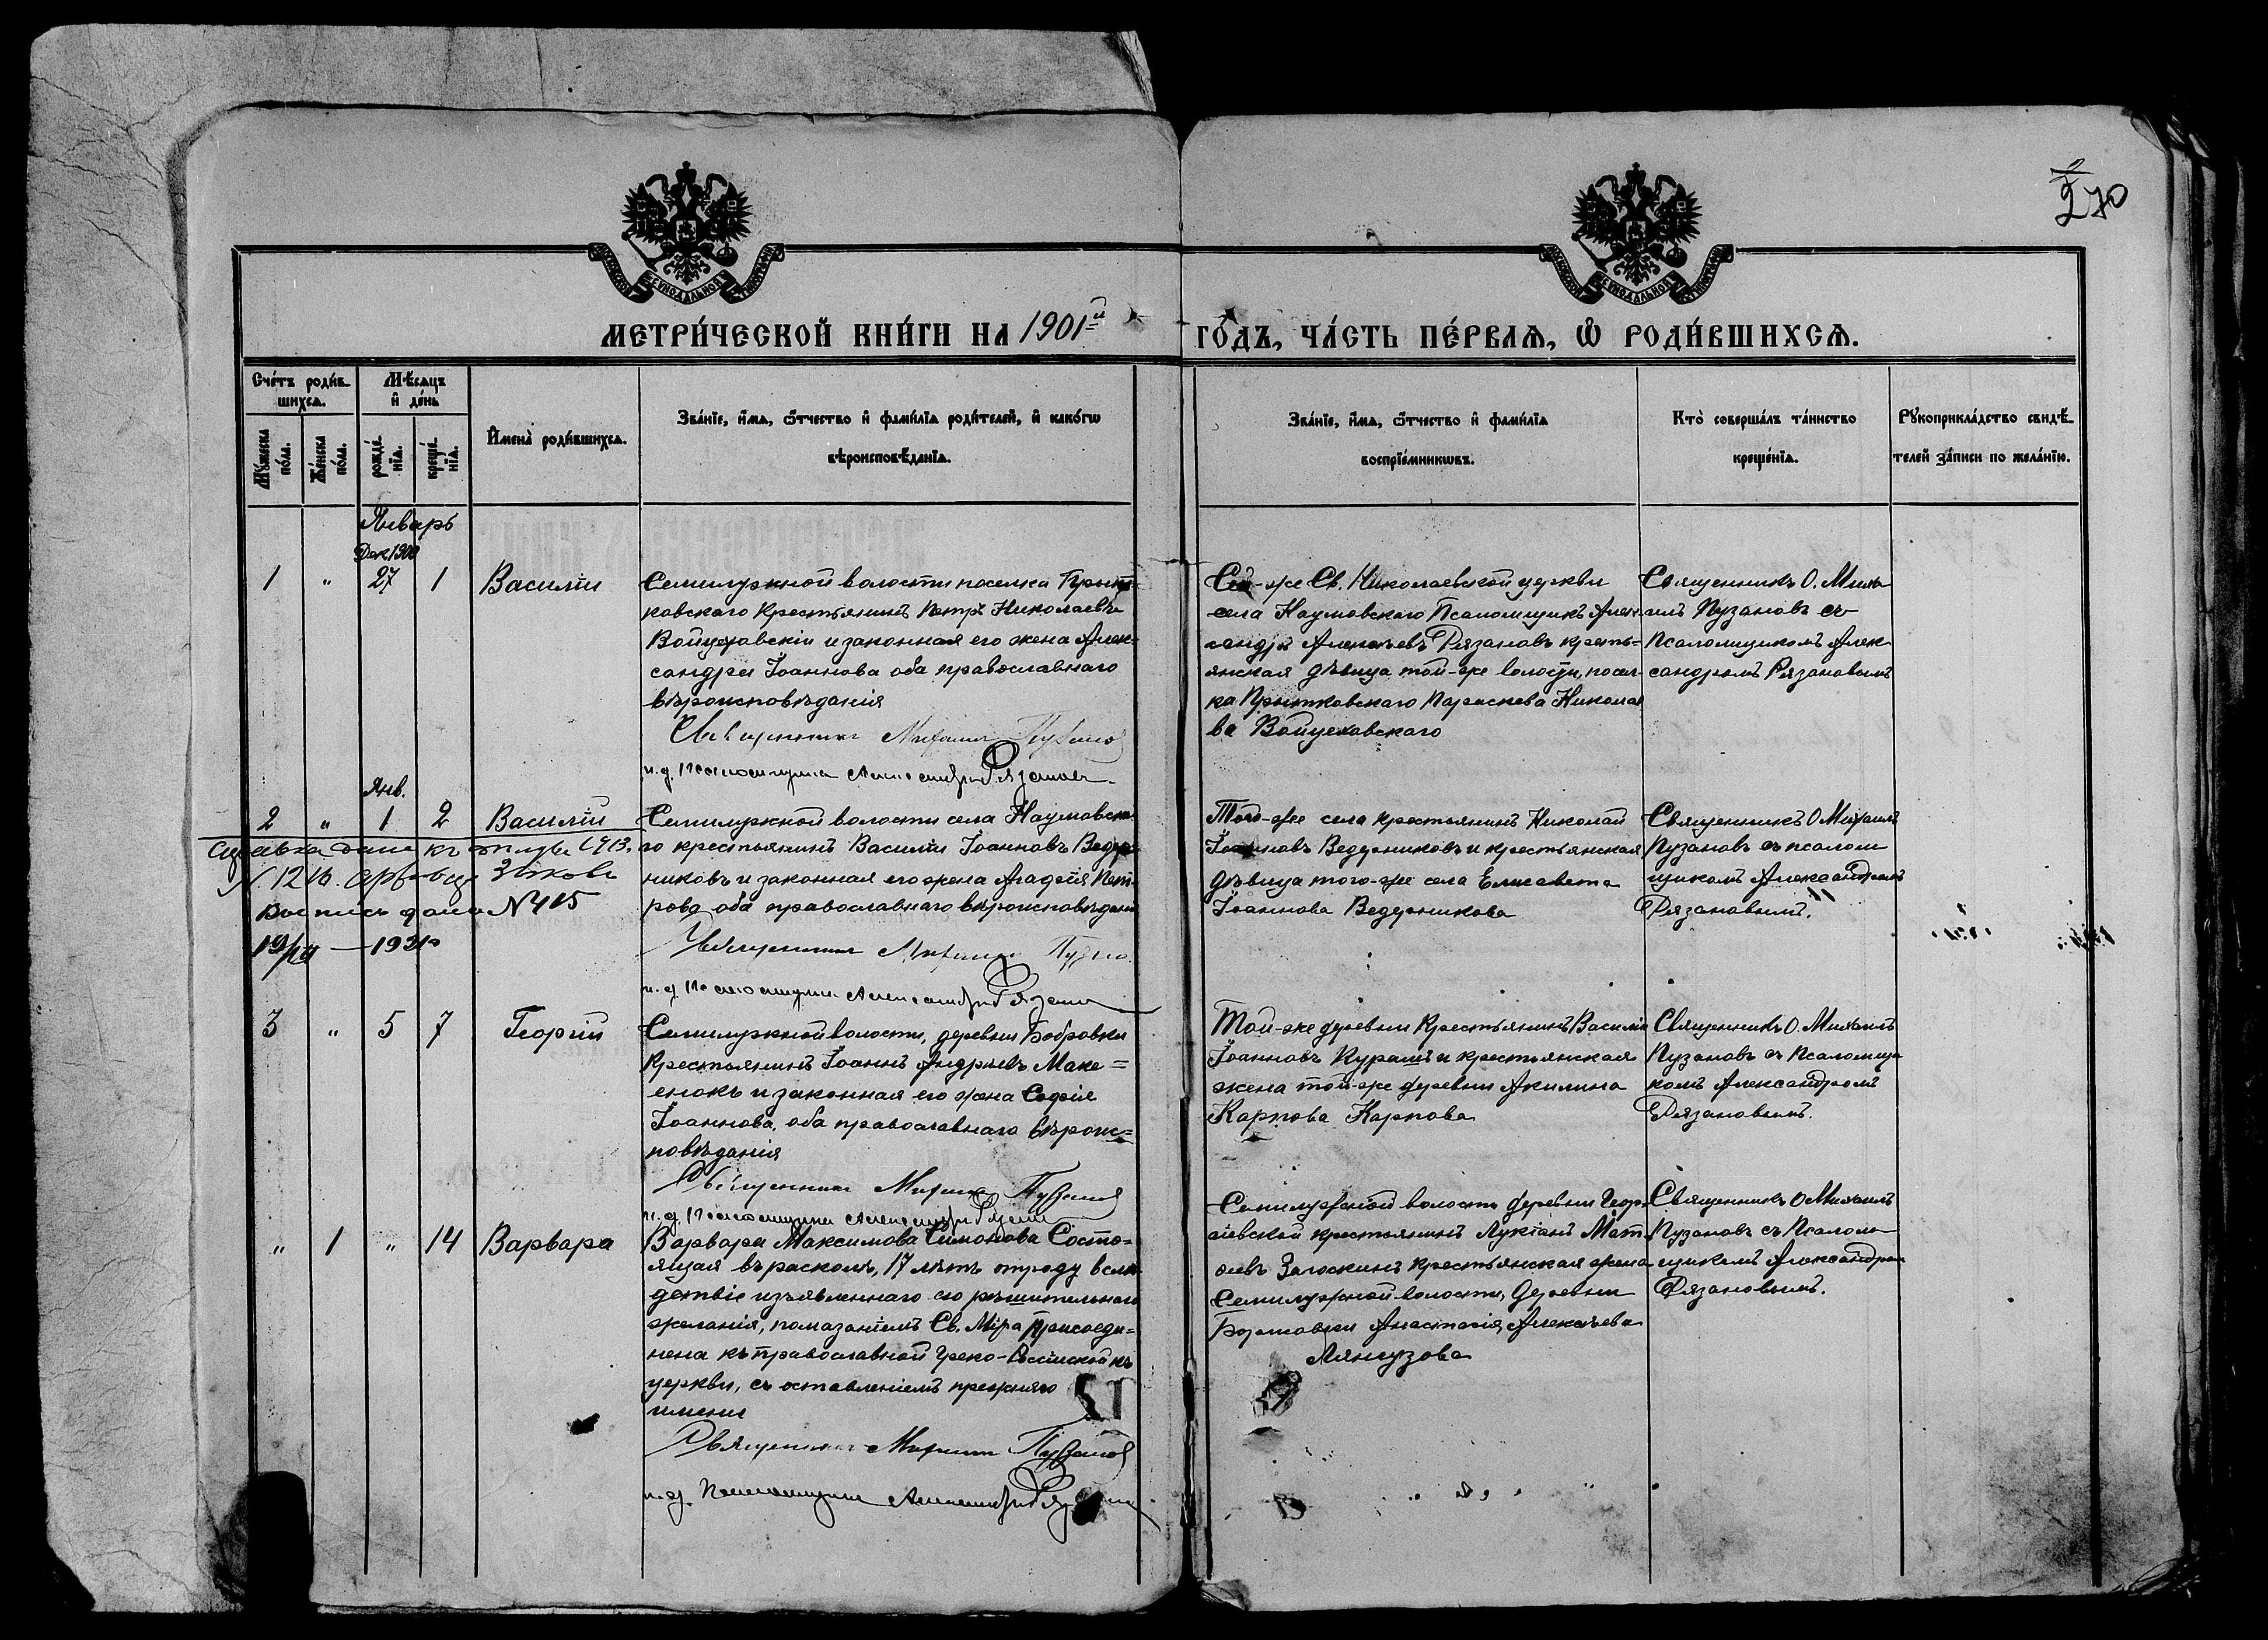 270
МЕТРИ́ЧЕСКОЙ КНИ́ГИ НА 1901й ГО́ДЪ, ЧА́СТЬ ПЕ́РВАѦ, Ѡ РОДИ́ВШИХСѦ.
Сче́тъ роди́в-
шихсѧ.
Мѣсѧцъ
и де́нь
Мꙋжеска
по́ла.
Же́нска
по́ла.
рожде́-
нїѧ.
креще́-
нїѧ.
Имена̀ роди́вшихсѧ.
Зва́нїе, и́мѧ, ѻ́тчество и фами́лїѧ роди́телей, и како́гѡ
вѣроисповѣданїѧ.
Зва́нїе, и́мѧ, ѻ́тчество и фами́лїѧ
воспрїе́мникѡвъ.
Кто̀ соверша́лъ та́инство
креще́нїѧ.
Рꙋкоприкла́дство свидѣ-
телей за́писи по жела́нїю.
Январь
Дек. 1900
1 " 27 1 Василiй
Семилужной волости поселка Прыт-
ковскаго крестьянинъ Петръ Николаевъ
Войцеховскiй и законная его жена Алек-
сандра Iоаннова оба православнаго
вѣроисповѣданiя
Священникъ Михаилъ Пузановъ
и. д. Псаломщика Александръ Рязановъ
Сей-же Св. Николаевской церкви
села Наумовскаго Псаломщикъ Алек-
сандръ Алексѣевъ Рязановъ кресть-
янская дѣвица той-же волости, посел-
ка Прытковскаго Параскева Никола
ва Войцеховскаго
Священникъ О. Миха-
илъ Пузановъ съ
Псаломщикомъ Алек-
сандромъ Рязановымъ
Янв.
2 " 1 2 Василiй
Справка дана
N. 1216.
выпись дана N 415
Семилужной волости села Наумовска-
го крестьянинъ Василiй Iоанновъ Ведер-
никовъ и законная его жена Агафiя Пет-
рова, оба православнаго вѣроисповѣданiя
Священникъ Михаилъ Пузановъ
и. д. Псаломщика Александръ Рязановъ
Того-же села крестьянинъ Николай
Iоанновъ Ведерниковъ и крестьянская
дѣвица того-же села Елисавета
Iоаннова Ведерникова
Священникъ О Михаилъ
Пузановъ съ псалом
щикомъ Александромъ
Рязановымъ.
3 " 5 7 Георгiй
Семилужной волости, деревни Бобровки
крестьянинъ Iоаннъ Андреевъ Маке=
енокъ и законная его жена Софiя
Iоаннова, оба православнаго вѣроис=
повѣданiя
Священникъ Михаилъ Пузановъ
и. д. Псаломщика Александръ Рязановъ
Той-же деревни крестьянинъ Василiй
Iоанновъ Курашъ и крестьянская
жена той-же деревни Акилина
Карпова Карпова
Священникъ О. Михаилъ
Пузановъ съ Псаломщи
комъ Александромъ
Рязановымъ.
" 1 " 14 Варвара
Варвара Максимова Симонова Состо=
ящая въ расколѣ, 17 лѣтъ отроду вслѣ
дствiе изъявленнаго ею рѣшительнаго
желанiя, помазанiемъ Св. Мѵра присоеди=
нена къ православной Греко-Россiйской
церкви, съ оставленiемъ прежняго
имени
Священникъ Михаилъ Пузановъ
и. д. Псаломщика Александръ Рязановъ
Семилужной волости деревни Геор-
гiевской крестьянинъ Лукiанъ Мат
ѳеевъ Загоскинъ крестьянская жена
Семилужной волости, деревни
Анастасiя Алексѣева
Лянгузова
Священникъ О Михаилъ
Пузановъ съ Псалом
щикомъ Александромъ
Рязановымъ.